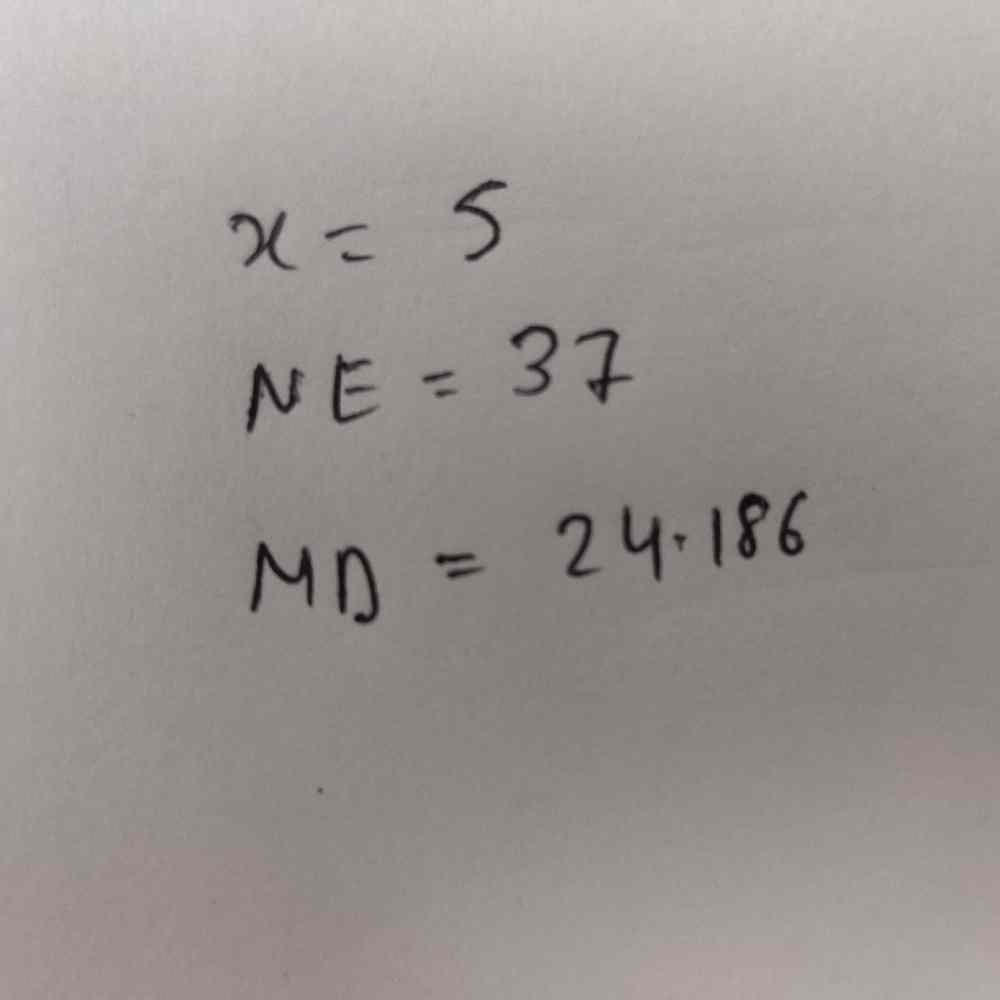 x = 5
NE = 37
MD = 24.186